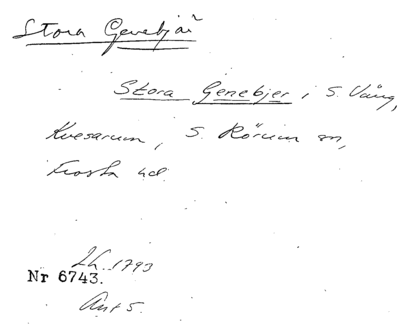 Stora Genebjär
Stora Genebjer i S. Vång,
Kvesarum, S. Rörum sn,
Frosta hd.
Lh. 1793
Nr 6743.
Akt 5.